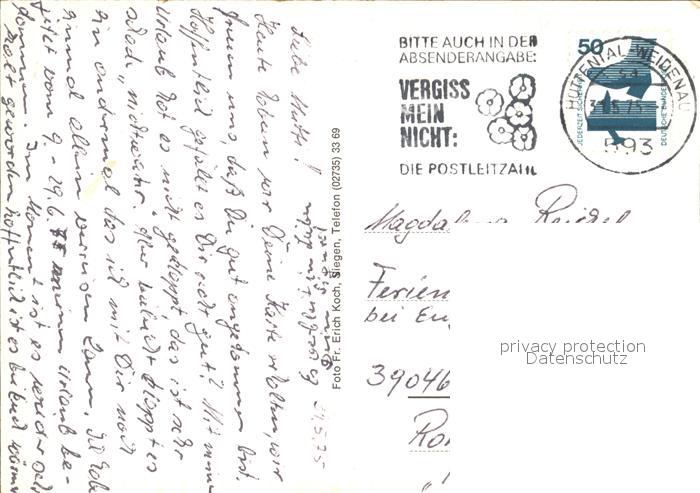 BITTE AUCH IN DER
ABSENDERANGABE:
VERGISS
MEIN
NICHT:
DIE POSTLEITZAHL
50
JEDERZEIT SICHERHEIT
DEUTSCHE BUNDESPOST
HÜTTENTAL-WEIDENAU
593
Foto Fr. Erich Koch, Siegen, Telefon (02735) 33 69
31.5.75
Liebe Mutti!
Heute haben wir Deine Karte erhalten, wir
freuen uns daß Du gut angekommen bist.
Hoffentlich gefällt es Dir recht gut? Mit meinem
Urlaub hat es nicht geklappt das ist sehr
schade, nicht wahr. Aber vielleicht klappt es
ein andermal das ich mit Dir noch
einmal allein verreisen kann. Ich habe
jetzt vom 9. - 29.6. meinen Urlaub be-
kommen. Im Moment ist es wieder sehr
kalt geworden hoffentlich ist es bei Euch wärmer
Magdalena
Ferien
bei
39046
privacy protection
Datenschutz